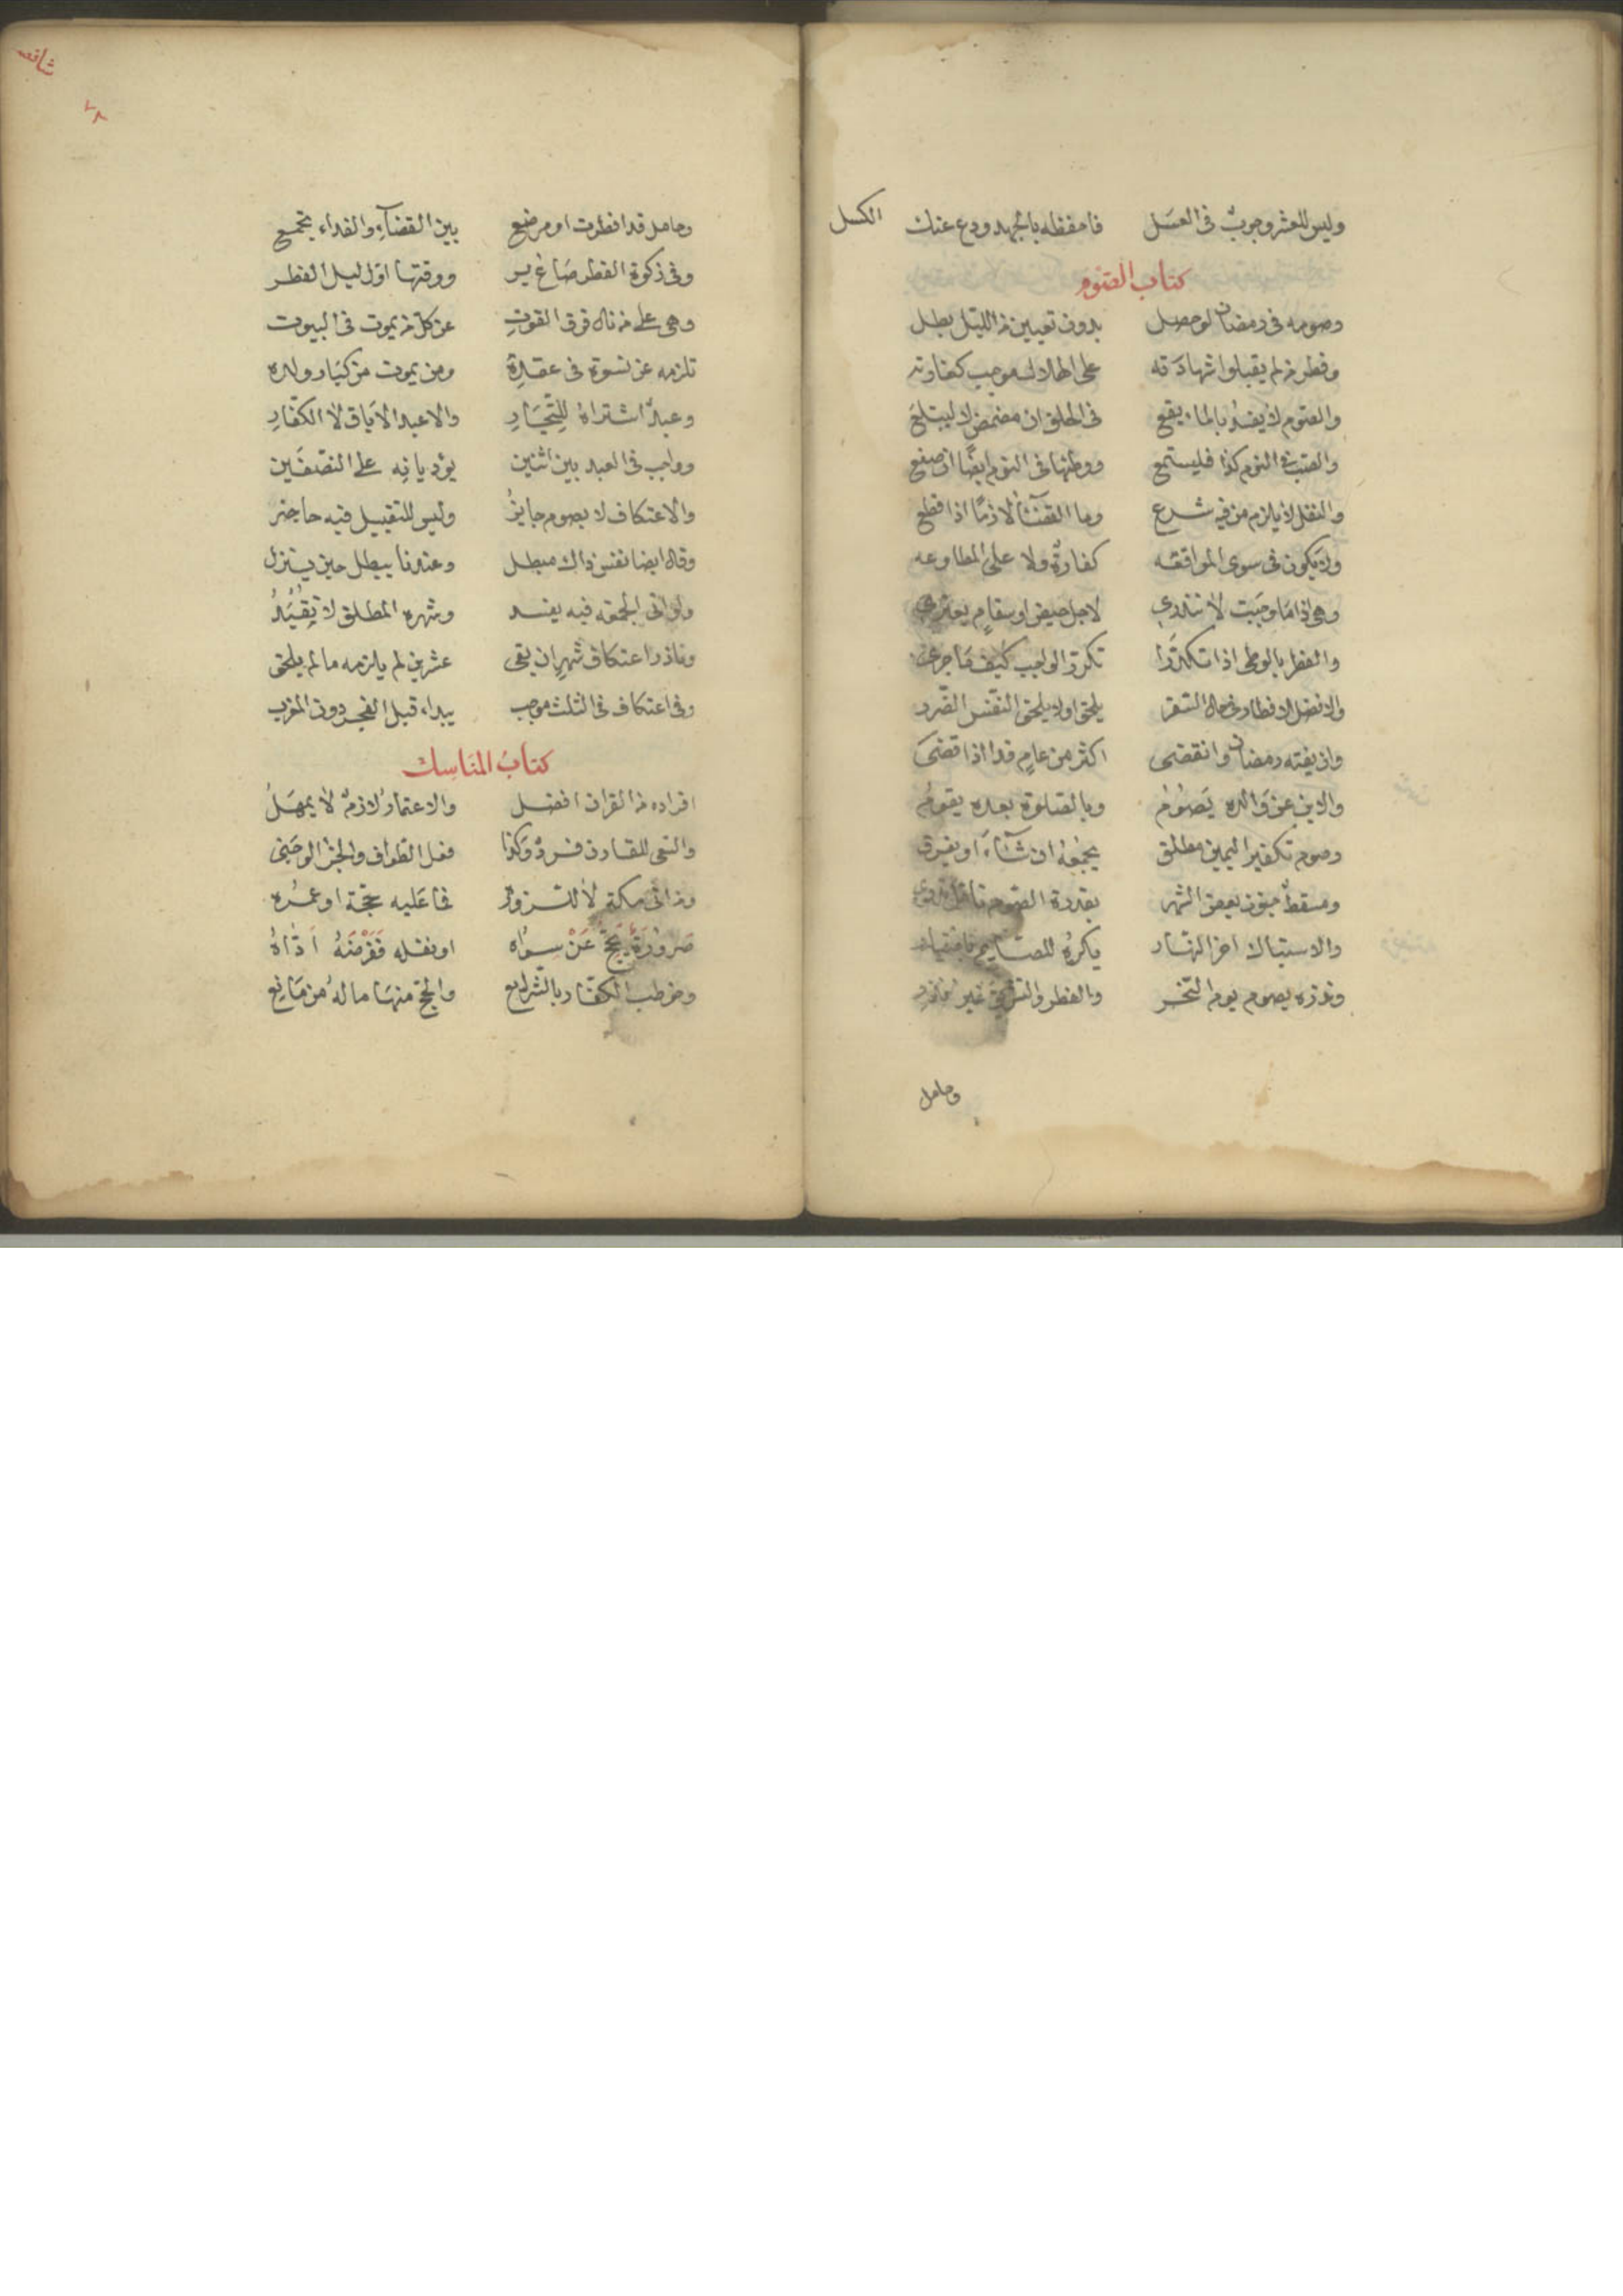 وليس للعشر وجوب في العسل فاحفظه بالجهد ودع عنك الكسل
كتاب الصوم
وصومه في رمضان لو حصل بدون تعيين من الليل بطل
وفطر من لم يقبلوا شهادته على الهلال موجب كفارته
والصوم لا يفسد بالماء يقع في الحلق ان مضمض لا ليبتلع
والصب في النوم كذا فليستمع ووطئها في النوم ايضا ان صنع
والنفل لا يلزم من فيه شرع وما القضاء لازما اذا قطع
ولا يكون في سوى المواقعه كفارة ولا على المطاوعه
وهي اذا ما وجبت لا تندري لاجل حيض او سقام يعتري
والفطر بالوطي اذا تكررا تكرر الواجب كيف ما جرى
والافضل الافطار في حال السفر يلحق او لا يلحق النفس الضرر
وان يفته رمضان وانقضى اكثر من عام فدا اذا قضى
والابن عن والده يصوم وبالصلوة بعده يقوم
وصوم تكفير اليمين مطلق يجمعه ان شاء او يفرق
ومسقط جنون بعض الشهر بقدره الصوم
والاستياك اخر النهار يكره للصايم
ونذره بصوم يوم النحر والفطر والتشريق غير
وحامل
شافعي
٧٨
وحامل قد افطرت او مرضع بين القضاء والفداء تجمع
وفي زكوة الفطر صاع بر ووقتها اول ليل الفطر
وهي على من نال فوق القوت عن كل من يموت في البيوت
تلزمه عن نسوة في عقده ومن يموت من كبار ولده
وعبد اشتراه للتجار والاعبد الاباق لا الكفار
وواجب في العبد بين اثنين يؤديانه على النصفين
والاعتكاف لا بصوم جايز وليس للتقبيل فيه حاجز
وقال ايضا نفس ذاك مبطل وعندنا يبطل حين ينزل
ولو اتى الجمعة فيه يفسد وشهره المطلق لا يقيد
وناذر اعتكاف شهر ان بقي عشرين لم يلزمه ما لم يلحق
وفي اعتكاف في الثلث موجب يبدا قبل الفجر دون المغرب
كتاب المناسك
افراده من القران افضل والاعتمار لازم لا يهمل
والسعي للقارن فرد وكذا فعل الطواف والجزا لو جنى
ومن اتى مكة لا للنـزه فما عليه حجة او عمره
صرورة يحج عن سواه او نفله ففرضه اداه
وخوطب الكفار بالشرايع والحج منها ماله من مانع